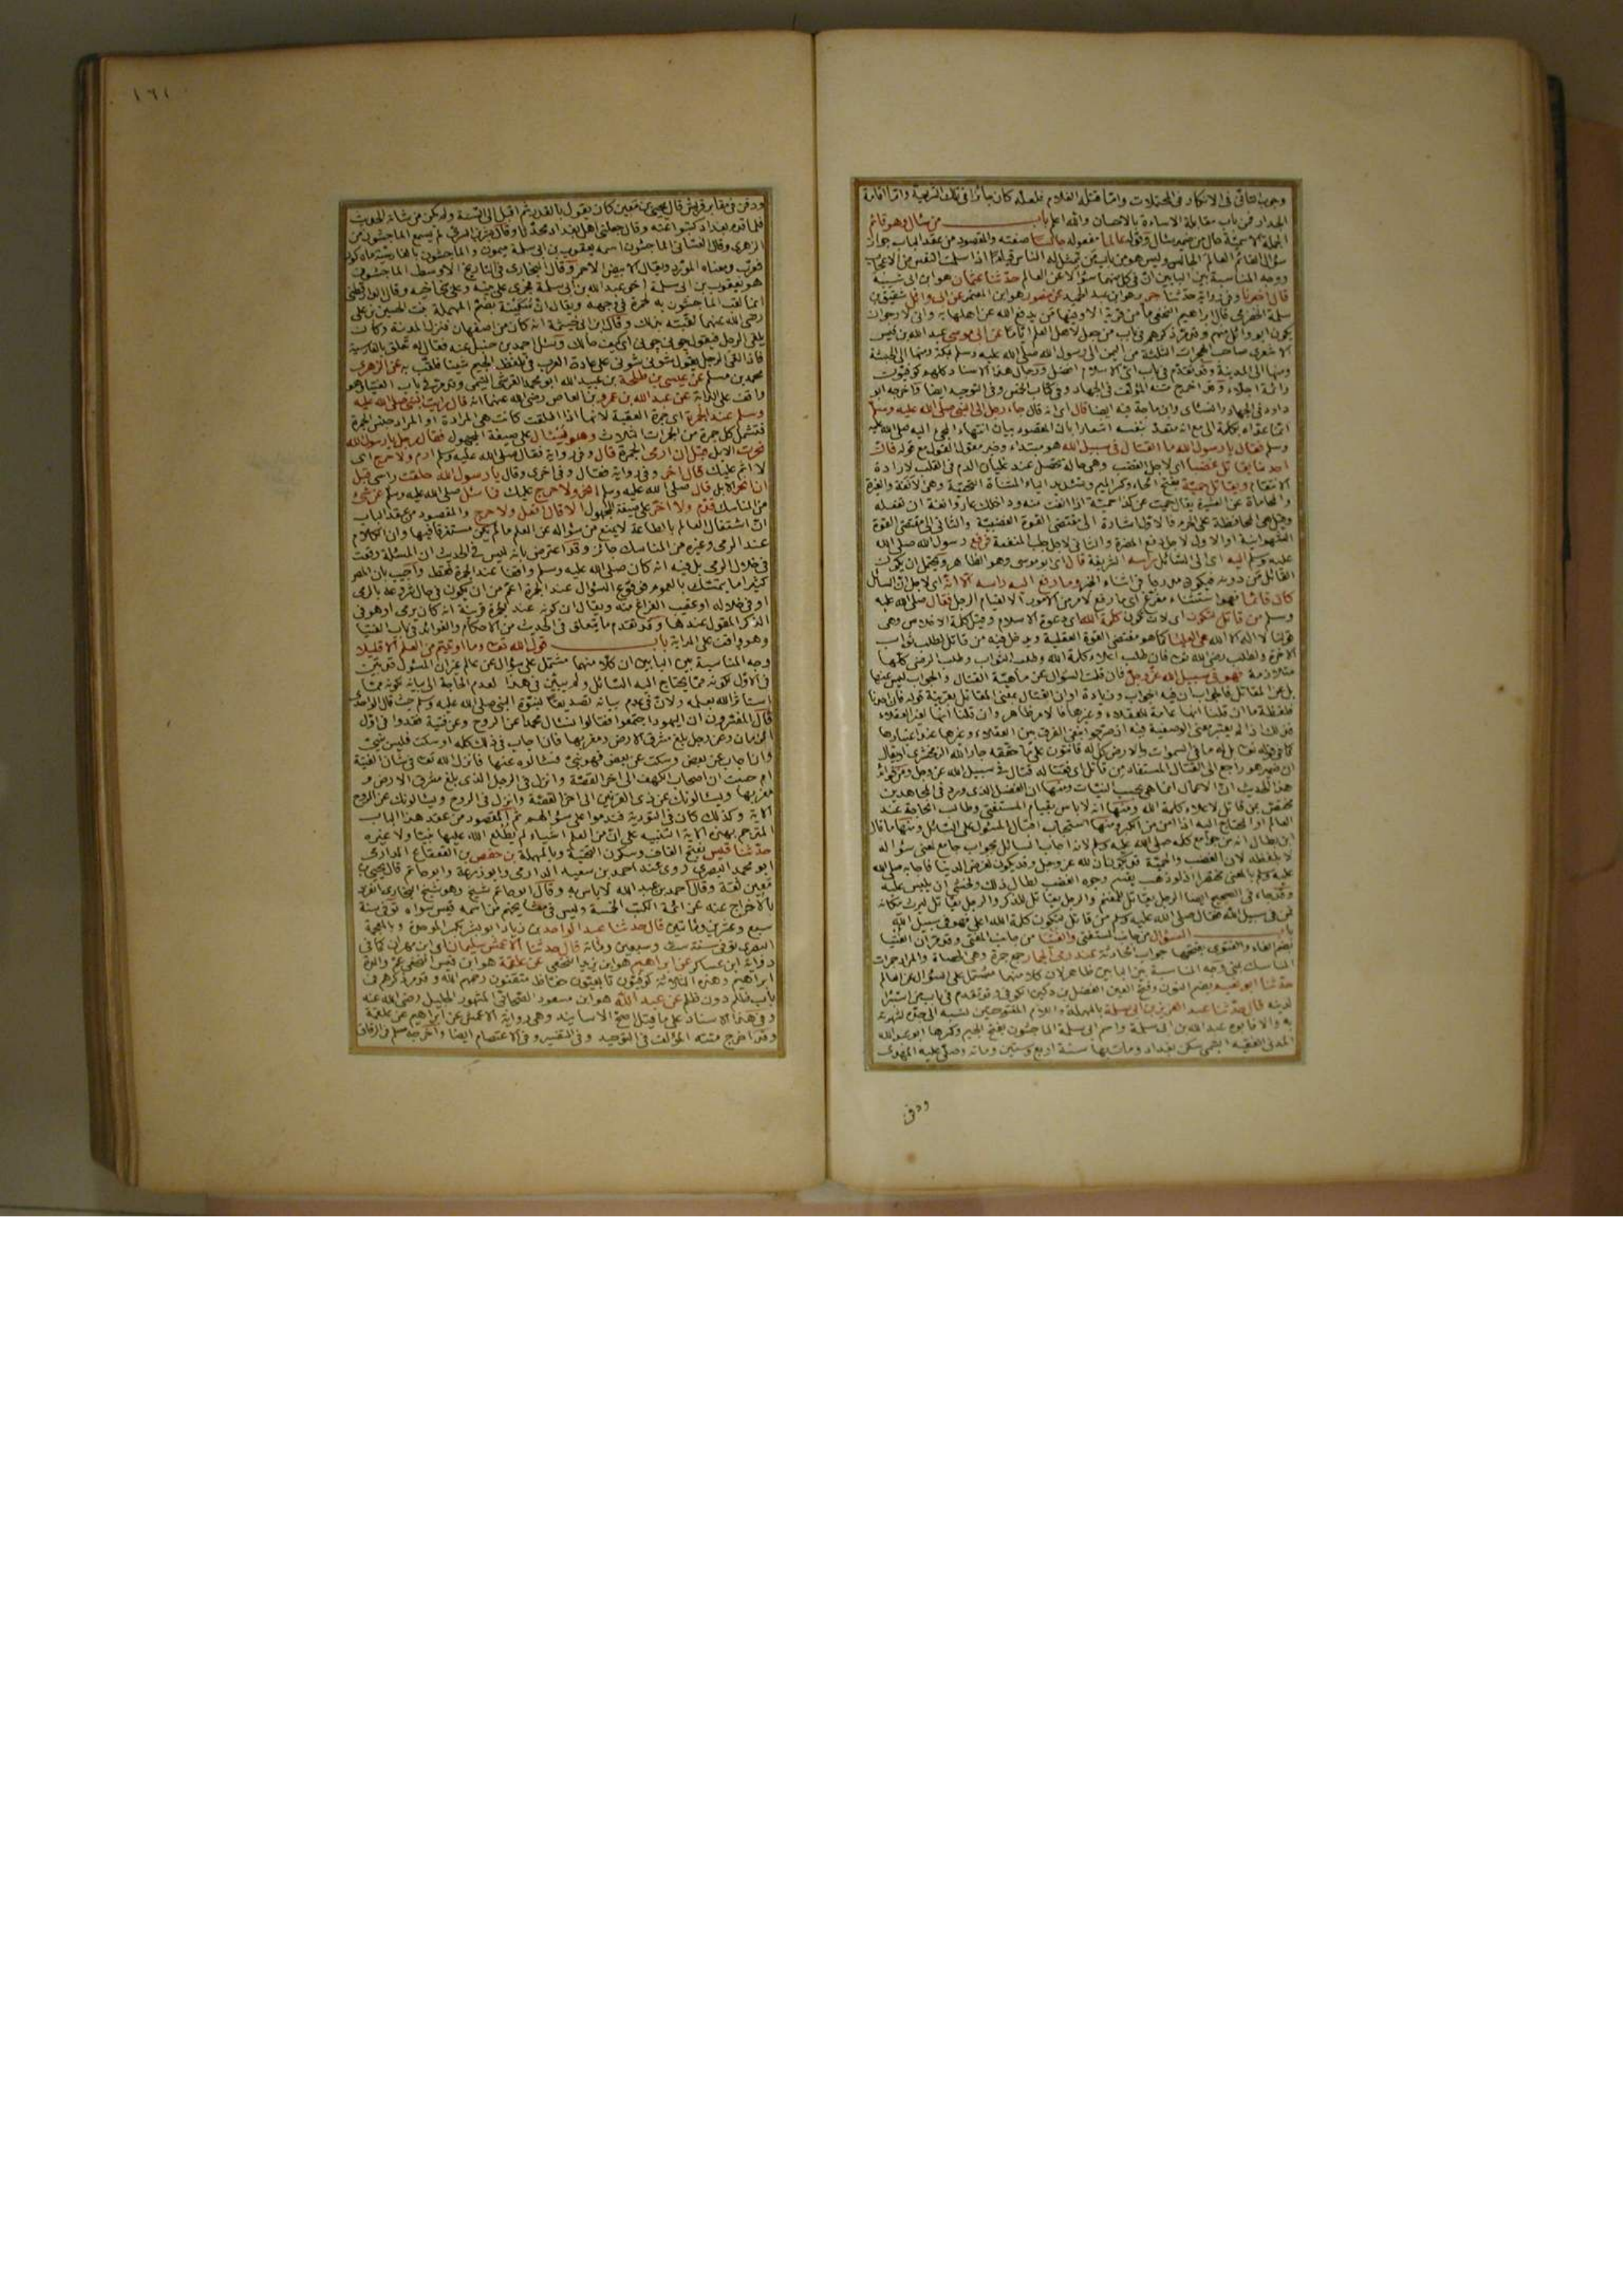 وجوب التأني في الانكار في المحتملات واما قتله الغلام فلعله كان جائزا في تلك الشريعة واما اقامة
الجدار فمن باب مقابلة الاساءة بالاحسان والله اعلم باب من سال وهو قائم
الجملة الاسمية حال من ضمير سأل وقوله عالما مفعوله جالسا صفته والمقصود من عقد الباب جواز
سؤال القائم العالم الجالس وليس هو من باب من يتمثل له الناس قياما اذا سلمت النفس من الاعجاب
ووجه المناسبة بين البابين ان في كل منهما سؤالا عن العالم حدثنا عثمان هو ابن ابي شيبة
قال اخبرنا وفي رواية حدثنا جرير هو ابن عبد الحميد عن منصور هو ابن المعتمر عن ابي وائل شقيق بن
سلمة الحضرمي قال ابراهيم النخعي ما من قرية الا وفيها من يدفع الله عن اهلها به واني لارجو ان
يكون ابو وائل منهم وقد مر ذكرهم في باب من جعل لاهل العلم اياما عن ابي موسى عبد الله بن قيس
الاشعري صاحب الهجرات الثلاثة من اليمن الى رسول الله صلى الله عليه وسلم بمكة ومنها الى الحبشة
ومنها الى المدينة وقد تقدم في باب اي الاسلام افضل ورجال هذا الاسناد كلهم كوفيون
وائمة اجلاء وقد اخرج متنه المؤلف في الجهاد وفي كتاب الخمس وفي التوحيد ايضا واخرجه ابو
داود في الجهاد والنسائي وابن ماجة فيه ايضا قال اي انه قال جاء رجل الى النبي صلى الله عليه وسلم
انما عداه بكلمة الى مع انه متعد بنفسه اشعارا بان المقصود بيان انتهاء المجئ اليه صلى الله عليه
وسلم فقال يا رسول الله ما القتال في سبيل الله هو مبتداء وخبر مقول القول مع قوله فان
احدنا يقاتل غضبا اي لاجل الغضب وهي حالة تحصل عند غليان الدم في القلب لارادة
الانتقام ويقاتل حمية بفتح الحاء وكسر الميم وتشديد الياء المثناة التحتية وهي الانفة والغيرة
والمحاماة عن العشيرة يقال حميت عن كذا حمية اذا انفت منه وداخلك عار وانفة ان تفعله
وقيل هي المحافظة على الحرم فالاول اشارة الى مقتضى القوة الغضبية والثاني الى مقتضى القوة
الشهوانية او الاول لاجل دفع المضرة والثاني لاجل جلب المنفعة فرفع رسول الله صلى الله
عليه وسلم اليه اي الى السائل راسه الشريفة قال اي ابو موسى وهو الظاهر ويحتمل ان يكون
القائل من دونه فيكون مدرجا في اثناء الخبر وما رفع اليه راسه الا انه اي لاجل ان السائل
كان قائما فهو استثناء مفرغ اي ما رفع لامر من الامور الا لقيام الرجل فقال صلى الله عليه
وسلم من قاتل لتكون اي لان تكون كلمة الله اي دعوة الاسلام وقيل كلمة الاخلاص وهي
قولنا لا اله الا الله هي العليا كما هو مقتضى القوة العقلية ويدخل فيه من قاتل لطلب ثواب
الاخرة ولطلب رضى الله تعالى فان طلب اعلاء كلمة الله وطلب الثواب وطلب الرضى كلها
متلازمة فهو في سبيل الله عز وجل فان قلت السؤال عن ماهية القتال والجواب ليس عنها
بل عن المقاتل فالجواب ان فيه الجواب وزيادة او ان القتال بمعنى المقاتل بقرينة قوله فان احدنا
فلفظة ما ان قلنا انها عامة للعقلاء وغيرها فالامر ظاهر وان قلنا انها لغير العقلاء
هذا الحديث ان الاعمال انما هي بحسب النيات ومنها ان الفضل الذي ورد في المجاهدين
مختص بمن قاتل لاعلاء كلمة الله ومنها انه لا باس بقيام المستفتي وطالب الحاجة عند
العالم او المحتاج اليه اذا امن من الكبر ومنها استحباب اقبال المسئول على السائل ومنها ما قال
لا بلفظه لان الغضب والحمية قد يكونان لله عز وجل وقد يكون لغرض الدنيا فاجابه صلى الله
عليه وسلم بالمعنى مختصرا اذ لو ذهب يقسم وجوه الغضب لطال ذلك ولخشي ان يلبس عليه
وقد جاء في الصحيح ايضا الرجل يقاتل للمغنم والرجل يقاتل للذكر والرجل يقاتل ليرى مكانه
فمن في سبيل الله فقال صلى الله عليه وسلم من قاتل لتكون كلمة الله اعلى فهو في سبيل الله
باب السؤال من جانب المستفتي والفتيا من جانب المفتي وقد مر ان الفتيا
بضم الفاء والفتوى بفتحها جواب الحادثة عند رمي الجمار جمع جمرة وهي الحصاة والمراد جمرات
المناسك بمنى وجه المناسبة بين البابين ظاهر لان كلا منهما مشتمل على السؤال عن العالم
حدثنا ابو نعيم بضم النون وفتح العين الفضل بن دكين الكوفي وقد تقدم في باب من استبرا
لدينه قال حدثنا عبد العزيز بن ابي سلمة بالمهملة واللام المفتوحتين نسبه الى جده لشهرته
به والا فابوه عبد الله بن ابي سلمة واسم ابي سلمة الماجشون بفتح الجيم وكسرها ابو عبد الله
المدني الفقيه التيمي سكن بغداد ومات بها سنة اربع وستين ومائة وصلى عليه المهدي
ودفن
١٦١
ودفن في مقابر قريش قال يحيى بن معين كان يقول بالقدر ثم اقبل الى السنة ولم يكن من شانه الحديث
فلما قدم بغداد كتبوا عنه وقال جعلني اهل بغداد محدثا وقال بشر بن السري لم يسمع الماجشون من
الزهري وقال الغساني الماجشون اسمه يعقوب بن ابي سلمة ميمون والماجشون بالفارسية ماه كون
فعرب ومعناه المورد ويقال الابيض الاحمر وقال البخاري في التاريخ الاوسط الماجشون
هو يعقوب بن ابي سلمة اخي عبد الله بن ابي سلمة فجرى على بنيه وعلى بني اخيه وقال الدارقطني
انما لقب الماجشون به لحمرة في وجهه ويقال ان سكينة بضم المهملة بنت الحسين بن علي
رضي الله عنهما لقبته بذلك وقال ابن ابي خيثمة انه كان من اصفهان فنزل المدينة وكان
يلقى الرجل فيقول جوني جوني اي كيف حالك وسئل احمد بن حنبل عنه فقال انه تعلق بالفارسية
فاذا لقي الرجل يقول شوني شوني على عادة العرب في تلفظ الجيم شينا فلقب به عن الزهري
محمد بن مسلم عن عيسى بن طلحة بن عبيد الله ابو محمد القرشي التيمي وقد مر في باب الفتيا وهو
واقف على الدابة عن عبد الله بن عمرو بن العاص رضي الله عنهما انه قال رايت النبي صلى الله عليه
وسلم عند الجمرة اي جمرة العقبة لانها اذا اطلقت كانت هي المرادة او المراد جنس الجمرة
فتشمل كل جمرة من الجمرات الثلاث وهو يسئل على صيغة المجهول فقال رجل يا رسول الله
نحرت الابل قبل ان ارمي الجمرة قال وفي رواية فقال صلى الله عليه وسلم ارم ولا حرج اي
لا اثم عليك قال اخر وفي رواية فقال وفي اخرى وقال يا رسول الله حلقت راسي قبل
ان انحر الابل قال صلى الله عليه وسلم انحر ولا حرج عليك فما سئل صلى الله عليه وسلم عن شئ
من المناسك قدم ولا اخر على صيغة المجهول الا قال افعل ولا حرج والمقصود من عقد الباب
ان اشتغال العالم بالطاعة لا يمنع من سؤاله عن العلم ما لم يكن مستغرقا فيها وان الكلام
عند الرمي وغيره من المناسك جائز وقد اعترض بانه ليس في الحديث ان المسئلة وقعت
في خلال الرمي بل فيه انه كان صلى الله عليه وسلم واقفا عند الجمرة فقط واجيب بان المص
كثيرا ما يتمسك بالعموم فوقوع السؤال عند الجمرة اعم من ان يكون في حال شروعه بالرمي
او في خلاله او عقيب الفراغ منه ويقال ان كونه عند الجمرة قرينة انه كان يرمي او هو في
الذكر المقول عندها وقد تقدم ما يتعلق في الحديث من الاحكام والفوائد في باب الفتيا
وهو واقف على الدابة باب قول الله تعالى وما اوتيتم من العلم الا قليلا
وجه المناسبة بين البابين ان كلا منهما مشتمل على سؤال عن عالم غير ان المسئول قد بين
في الاول لكونه مما يحتاج اليه السائل ولم يبين في هذا لعدم الحاجة الى بيانه لكونه مما
استاثر الله بعلمه ولان في عدم بيانه تصديقا لنبوة النبي صلى الله عليه وسلم حيث قال الواحدي
قال المفسرون ان اليهود اجتمعوا فقالوا نسال محمدا عن الروح وعن فتية فقدوا في اول
الزمان وعن رجل بلغ مشرق الارض ومغربها فان اجاب في ذلك كله او سكت فليس بنبي
وان اجاب عن بعض وسكت عن بعض فهو نبي فسالوه عنها فانزل الله تعالى في شان الفتية
ام حسبت ان اصحاب الكهف الى اخر القصة وانزل في الرجل الذي بلغ مشرق الارض و
مغربها ويسالونك عن ذي القرنين الى اخر القصة وانزل في الروح ويسالونك عن الروح
الاية وكذلك كان في التورية فندموا على سؤالهم ثم المقصود من عقد هذا الباب
المترجم بهذه الاية التنبيه على ان من العلم اشياء لم يطلع الله عليها نبيا ولا غيره
حدثنا قيس بفتح القاف وسكون التحتية وبالمهملة بن حفص بن القعقاع الدارمي
ابو محمد البصري روى عنه احمد بن سعيد الدارمي وابو زرعة وابو حاتم قال يحيى بن
معين ثقة وقال احمد بن عبد الله لا باس به وقال ابو حاتم شيخ وهو شيخ البخاري انفرد
بالاخراج عنه عن ائمة الكتب الخمسة وليس في مشايخهم من اسمه قيس سواه توفي سنة
سبع وعشرين ومائتين قال حدثنا عبد الواحد بن زياد ابو بشر بكسر الموحدة وبالمعجمة
البصري توفي سنة ست وسبعين ومائة قال حدثنا الاعمش سليمان اي ابن مهران كما في
رواية ابن عساكر عن ابراهيم هو ابن يزيد النخعي عن علقمة هو ابن قيس النخعي عم والدة
ابراهيم وهذه الثلاثة كوفيون تابعيون حفاظ متقنون رحمهم الله وقد مر ذكرهم في
باب ظلم دون ظلم عن عبد الله هو ابن مسعود الصحابي المشهور الجليل رضي الله عنه
وفي هذا الاسناد على ما قيل اصح الاسانيد وهي رواية الاعمش عن ابراهيم عن علقمة
وقد اخرج متنه المؤلف في التوحيد وفي التفسير وفي الاعتصام ايضا واخرجه مسلم في الرقاق